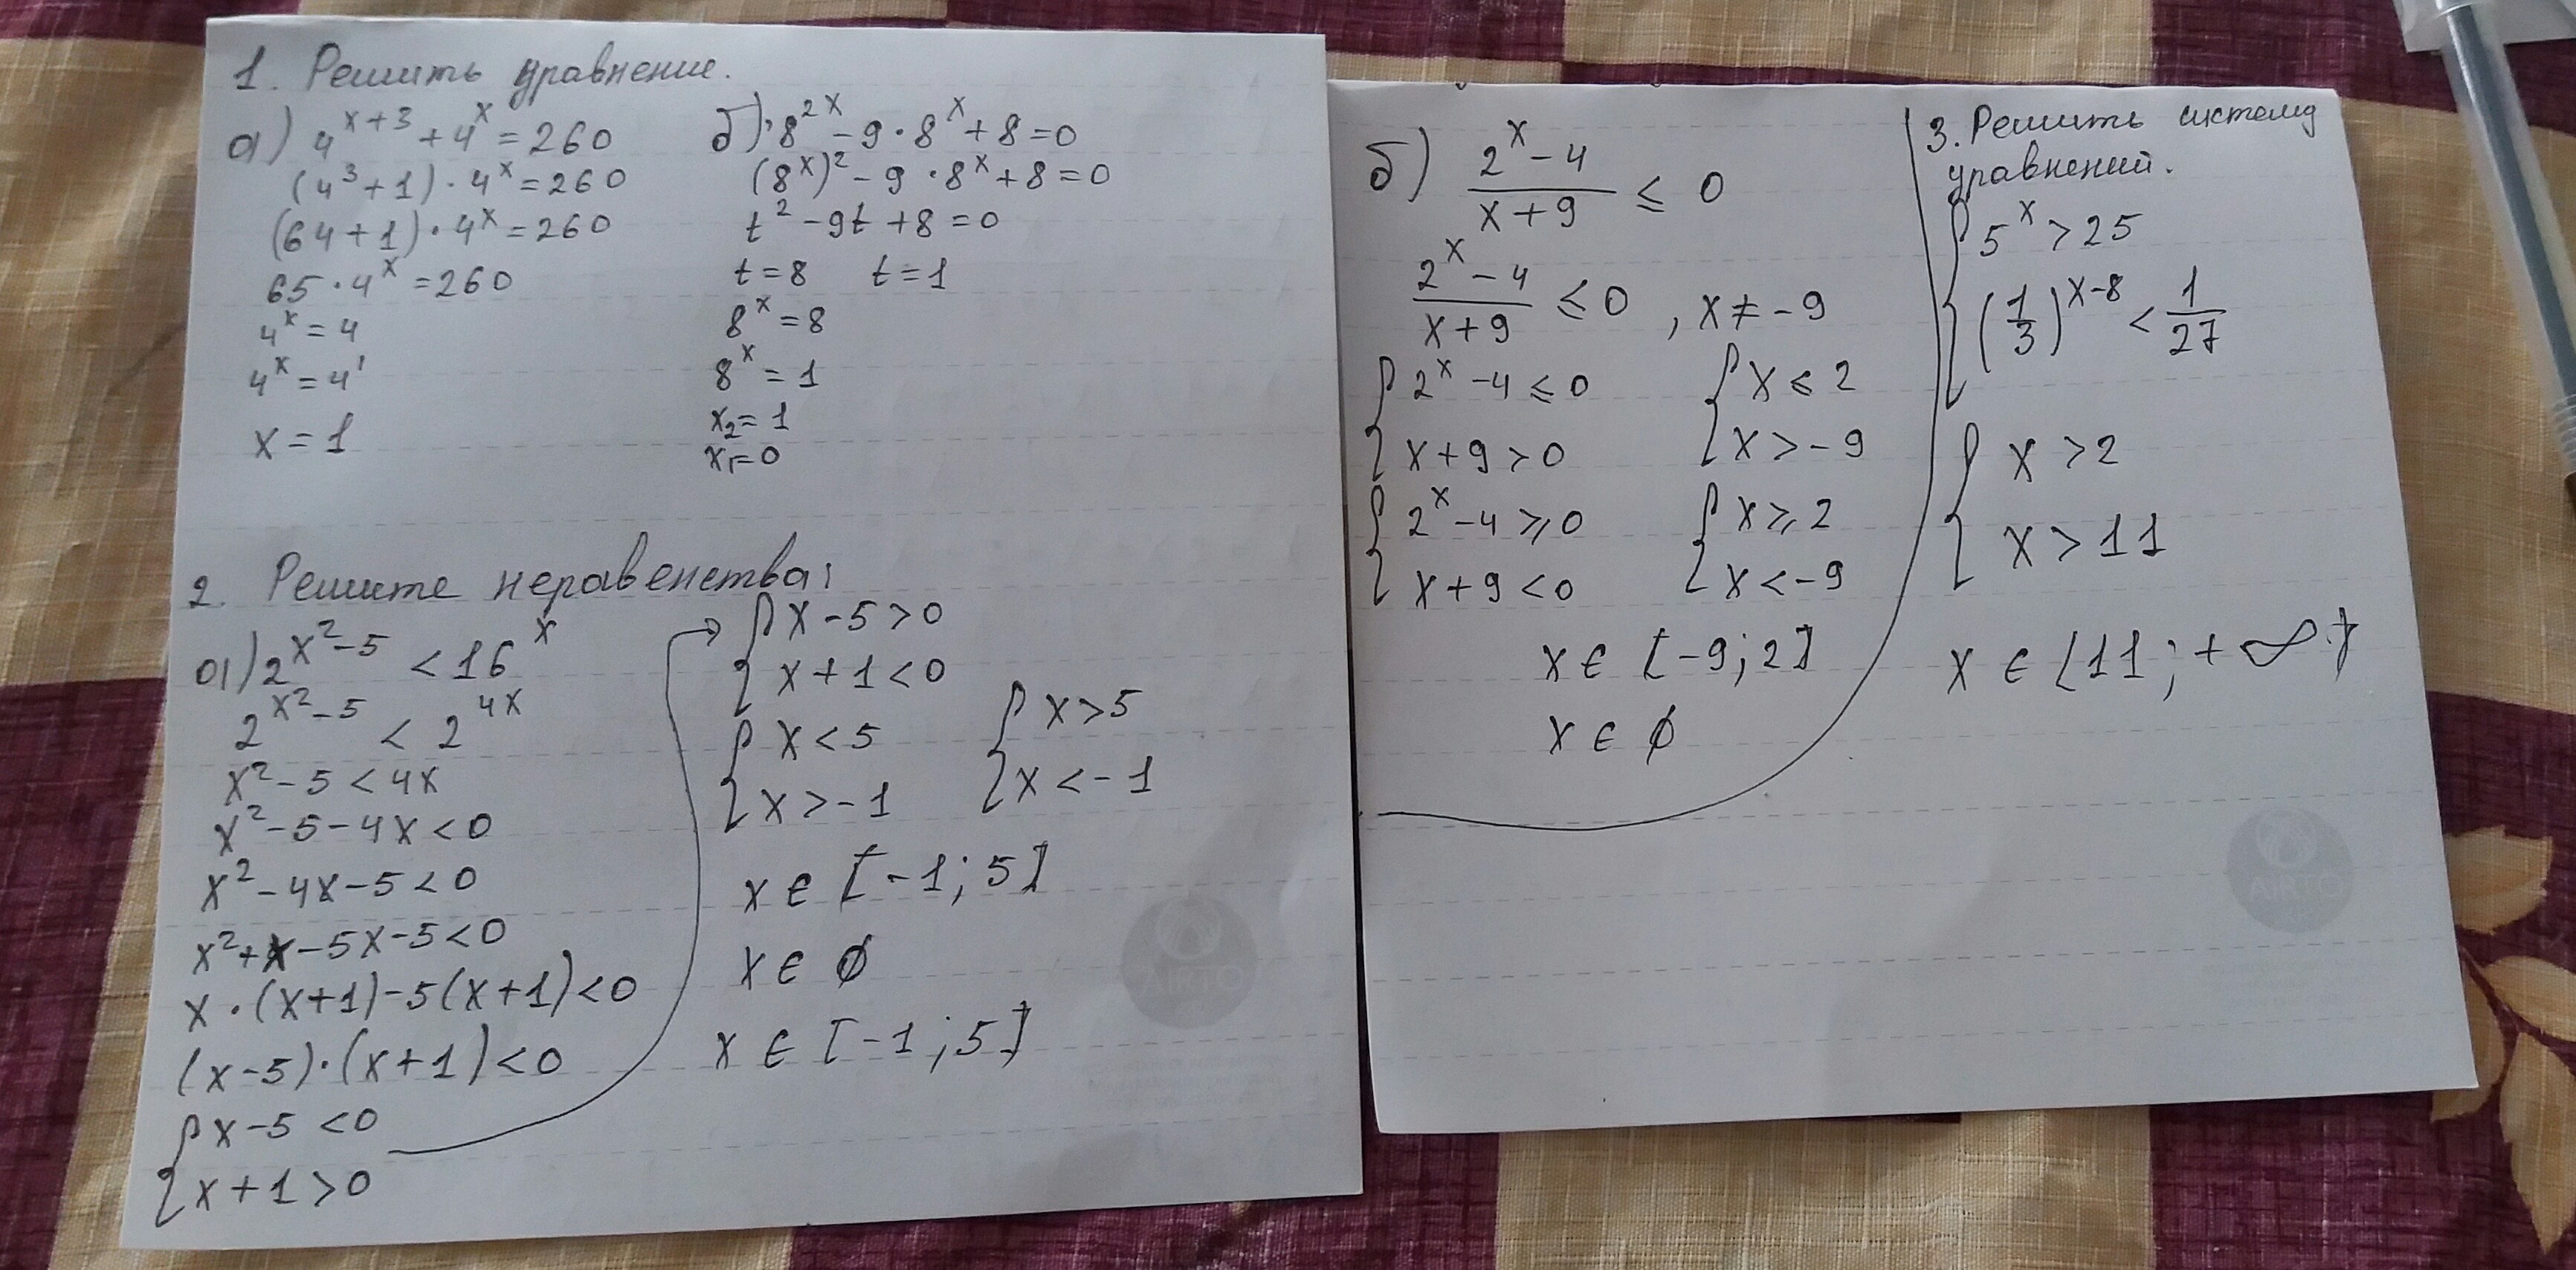 1. Решить уравнение.
а) 4^(x+3) + 4^x = 260
(4³+1) · 4^x = 260
(64+1) · 4^x = 260
65 · 4^x = 260
4^x = 4
4^x = 4¹
x = 1
б) 8^(2x) - 9 · 8^x + 8 = 0
(8^x)² - 9 · 8^x + 8 = 0
t² - 9t + 8 = 0
t = 8 t = 1
8^x = 8
8^x = 1
x₂ = 1
x₁ = 0
2. Решите неравенства:
а) 2^(x²-5) < 16^x
2^(x²-5) < 2^(4x)
x² - 5 < 4x
x² - 5 - 4x < 0
x² - 4x - 5 < 0
x² + x - 5x - 5 < 0
x · (x+1) - 5(x+1) < 0
(x-5) · (x+1) < 0
{ x - 5 < 0
x + 1 > 0
{ x - 5 > 0
x + 1 < 0
{ x < 5 { x > 5
x > -1 x < -1
x ∈ [-1; 5]
x ∈ ∅
x ∈ [-1; 5]
AIRTO
б) (2^x - 4)/(x + 9) ≤ 0
(2^x - 4)/(x + 9) ≤ 0, x ≠ -9
{ 2^x - 4 ≤ 0 { x ≤ 2
x + 9 > 0 x > -9
{ 2^x - 4 ≥ 0 { x ≥ 2
x + 9 < 0 x < -9
x ∈ [-9; 2]
x ∈ ∅
3. Решить систему
уравнений.
{ 5^x > 25
(1/3)^(x-8) < 1/27
{ x > 2
x > 11
x ∈ [11; +∞]
AIRTO